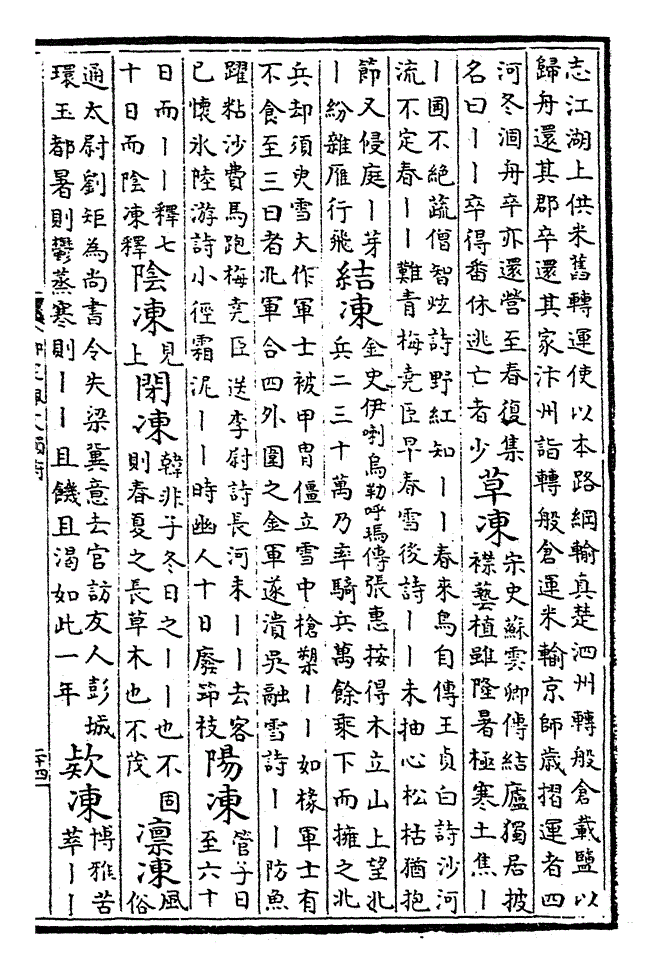 志江湖上供米舊轉運使以本路綱輸真楚泗州轉般倉載鹽以
歸舟還其郡卒還其家汴州詣轉般倉運米輸京師歲摺運者四
河冬涸舟卒亦還營至春復集
名曰丨丨卒得番休逃亡者少
草凍
宋史蘇雲卿傳結廬獨居披
襟藝植雖隆暑極寒土焦丨
丨圃不絶蔬僧智炫詩野紅知丨丨春來鳥自傳王貞白詩沙河
流不定春丨丨難青梅堯臣早春雪後詩丨丨未抽心松枯猶抱
節又侵庭丨芽
丨紛雜雁行飛
結凍
金史伊喇烏勒呼瑪傳張惠按得木立山上望北
兵二三十萬乃率騎兵萬餘乘下而擁之北
兵却須臾雪大作軍士被甲胄僵立雪中槍槊丨丨如椽軍士有
不食至三日者北軍合四外圍之金軍遂潰吳融雪詩丨丨防魚
躍粘沙費馬跑梅堯臣送李尉詩長河未丨丨去客
已懷氷陸游詩小徑霜泥丨丨時幽人十日廢筇枝
陽凍
管子日
至六十
日而丨丨釋七
十日而陰凍釋
陰凍
見
上
閉凍
韓非子冬日之丨丨也不固
則春夏之長草木也不茂
凛凍
風
俗
通太尉劉矩為尚書令失梁冀意去官訪友人彭城
環玉都暑則鬱蒸寒則丨丨且饑且渴如此一年
欵凍
博雅苦
萃丨丨